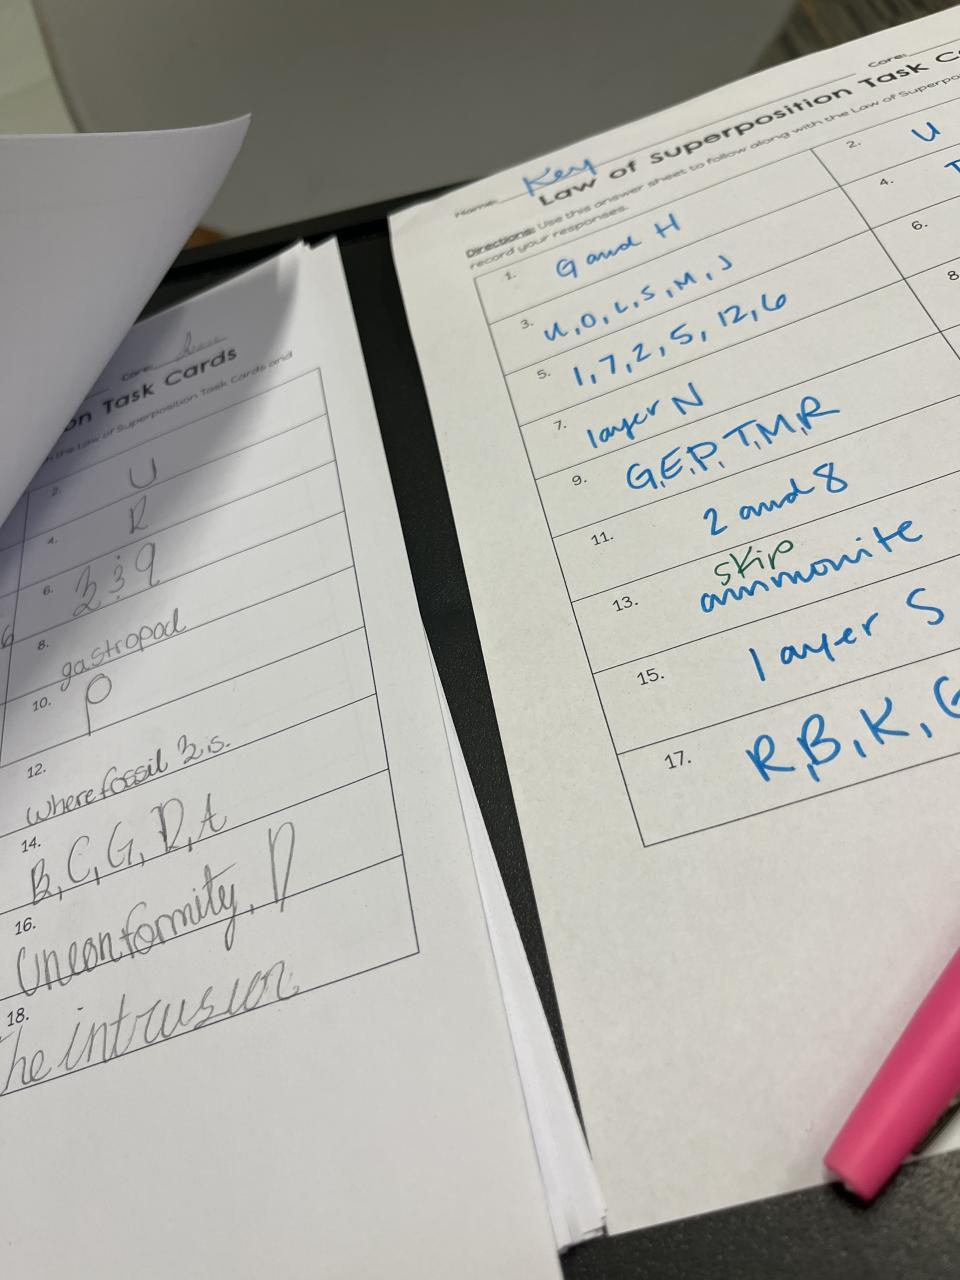 Core:
on Task Cards
the Law of Superposition Task Cards and
2. U
4. R
6. 3 & 9
8. gastropod
10. P
12. Where fossil 3 is.
14. B, C, G, D, A
16. Unconformity, D
18. The intrusion.
Name: Key Core:
Law of Superposition Task C
Directions: Use this answer sheet to follow along with the Law of Superpo
record your responses.
1. G and H
2. U
3. U, O, L, S, M, J
4.
5. 1, 7, 2, 5, 12, 6
6.
7. layer N
8
9. G, E, P, T, M, R
11. 2 and 8
skip
13. ammonite
15. layer S
17. R, B, K, G